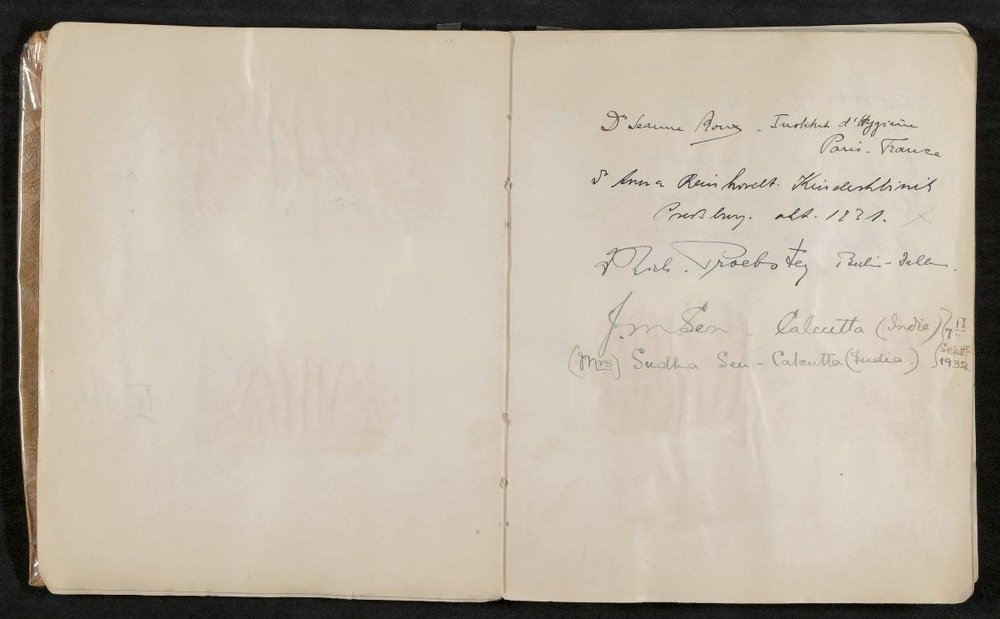 Dr Jeanne Roux - Institut d'Hygiène
Paris - France
Dr Anna Reinhordt. Kinderklinik
Preßburg. okt. 1931.
Dr Rich. Proebster Berlin - 
J. M Sen - Calcutta (India) 7th
(Mrs) Sudha Sen - Calcutta (India.) Sept. 1932